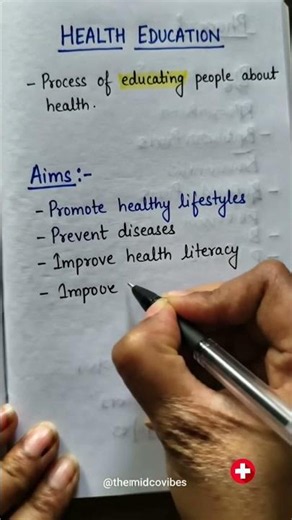 HEALTH EDUCATION
- Process of educating people about
health.
Aims :-
- Promote healthy lifestyles
- Prevent diseases
- Improve health literacy
- Impoove
@themidcovibes